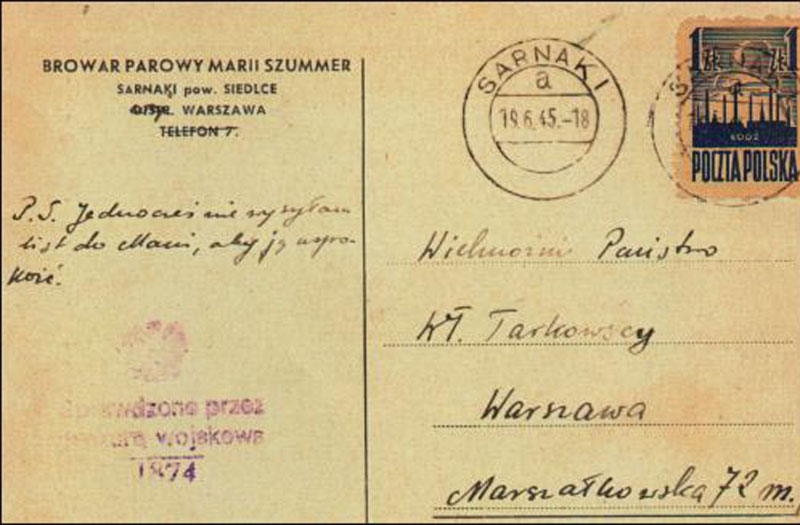 BROWAR PAROWY MARII SZUMMER
SARNAKI pow. SIEDLCE
DISTR. WARSZAWA
TELEFON 7.
P.S. Jednocześnie wysyłam
list do Mani, aby ją uspo-
koić.
Sprawdzone przez
cenzurę wojskową
1874
SARNAKI
a
19.6.45.-18
1 ZŁ 1 ZŁ
ŁÓDŹ
POCZTA POLSKA
Wielmożni Państwo
Wł. Tarkowscy
Warszawa
Marszałkowska 72 m.